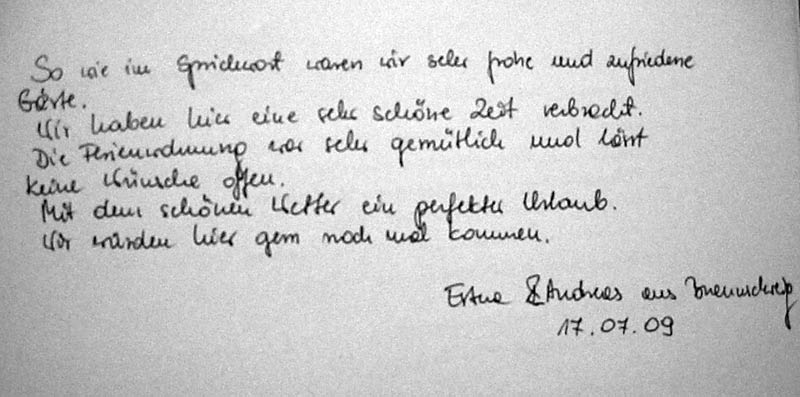 So wie im Sprichwort waren wir sehr frohe und zufriedene
Gäste.
Wir haben hier eine sehr schöne Zeit verbracht.
Die Ferienwohnung war sehr gemütlich und lässt
keine Wünsche offen.
Mit dem schönen Wetter ein perfekter Urlaub.
Wir würden hier gern noch mal kommen.
& Andreas aus
17.07.09